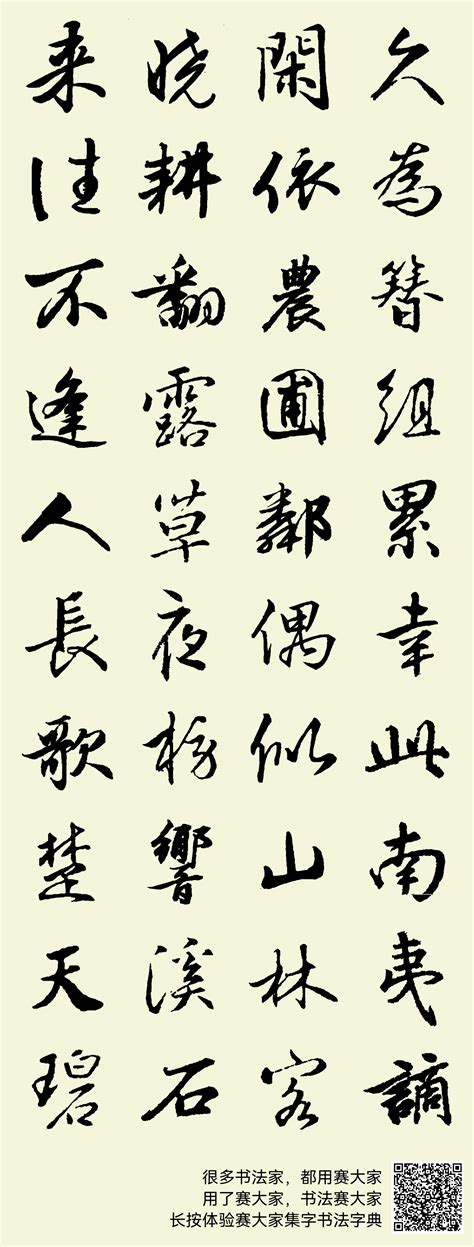 久為簪組累幸此南夷謫
閑依農圃鄰偶似山林客
晓耕翻露草夜榜響溪石
来往不逢人長歌楚天碧
很多书法家，都用赛大家
用了赛大家，书法赛大家
长按体验赛大家集字书法字典